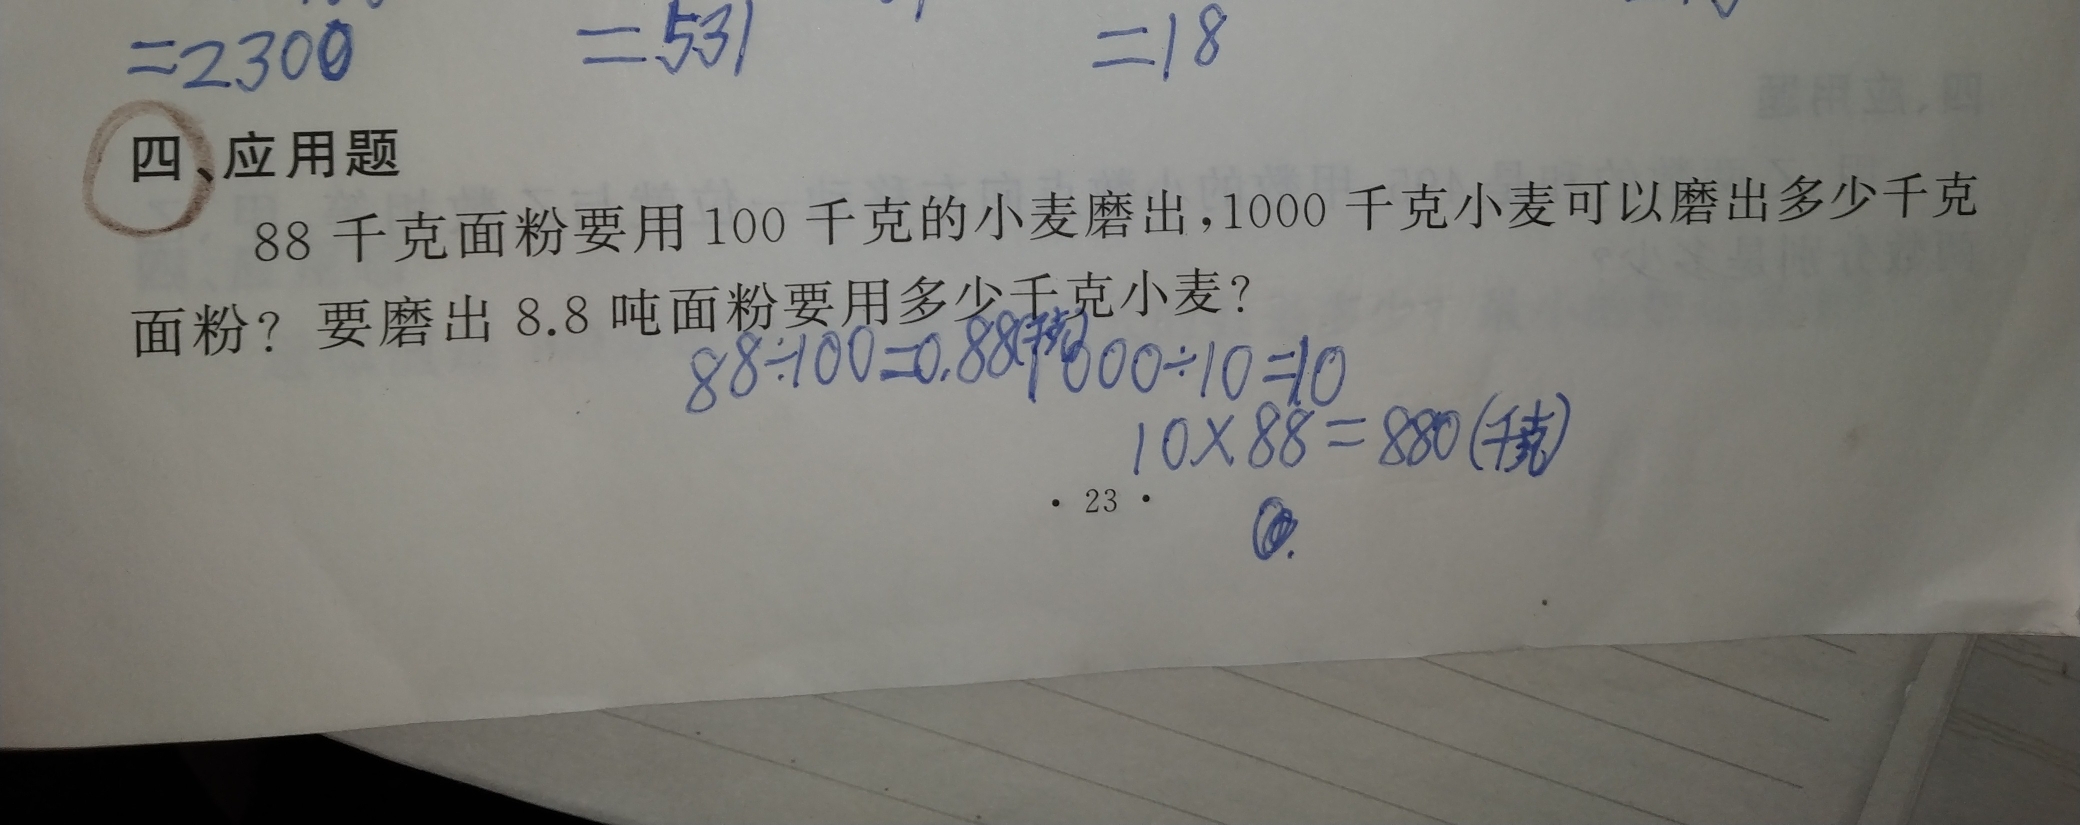 =2300 =531 =18
四、应用题
88千克面粉要用100千克的小麦磨出,1000千克小麦可以磨出多少千克
面粉？要磨出8.8吨面粉要用多少千克小麦？
88÷100=0.88(千克) 1000÷10=10
10×88=880(千克)
·23·